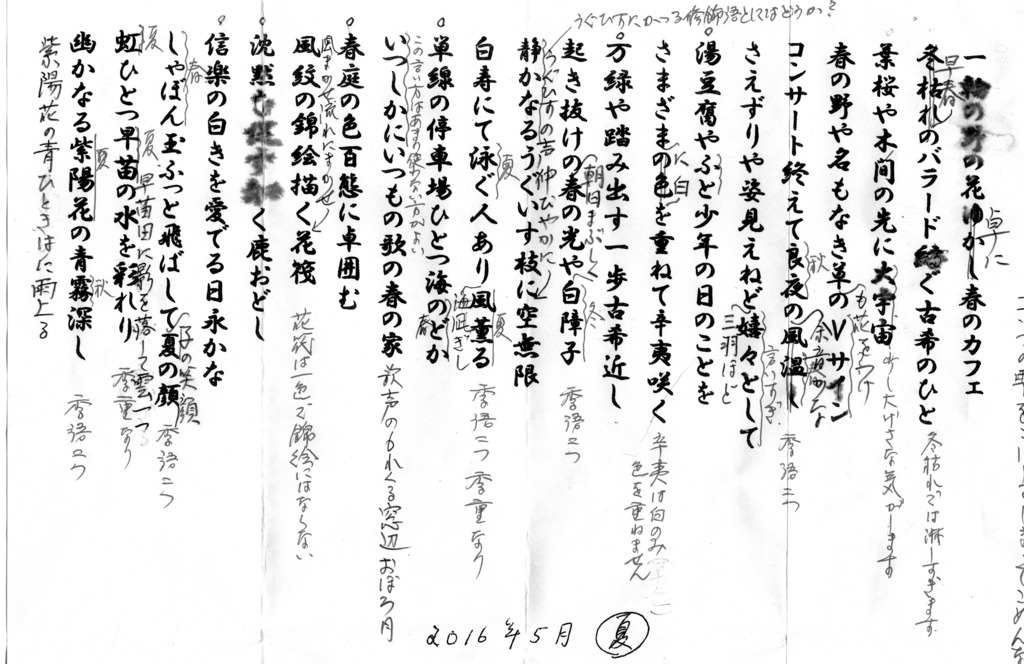 うぐひすにかかる修飾語としてはどうか?
一
の野の花ゆかし春のカフェ
卓に
冬枯れのバラード紡ぐ古希のひと
早春
冬枯れでは淋しすぎます
葉桜や木間の光に大宇宙
少し大げさな気がします
春の野や名もなき草のVサイン
も花をつけ
コンサート終えて良夜の風温し
秋
余韻かな
季語二つ
さえずりや姿見えねど嬉々として
三羽ほど
言いすぎ
湯豆腐やふと少年の日のことを
さまざまの色を重ねて辛夷咲く
に白
辛夷は白のみ
色を重ねません
万緑や踏み出す一歩古希近し
起き抜けの春の光や白障子
朝日まぶしく
冬
季語二つ
静かなるうぐいす枝に空無限
うぐひすの声伸びやかに
白寿にて泳ぐ人あり風薫る
夏
夏
季語二つ 季重なり
単線の停車場ひとつ海のどか
海凪ぎし
春
いつしかにいつもの歌の春の家
この言い方はあまり使わない方がよい
歌声のもれくる窓辺おぼろ月
春庭の色百態に卓囲む
風紋の錦絵描く花筏
風まかせ流れにまかせ
花筏は一色で錦絵にはならない
沈黙
く鹿おどし
信楽の白きを愛でる日永かな
しゃぼん玉ふっと飛ばして夏の顔
春
子の笑顔
季語二つ
虹ひとつ早苗の水を彩れり
夏
夏
早苗田に影を落して雲一つ
季重なり
幽かなる紫陽花の青霧深し
夏
秋
季語二つ
紫陽花の青ひときはに雨上る
2016年5月 夏